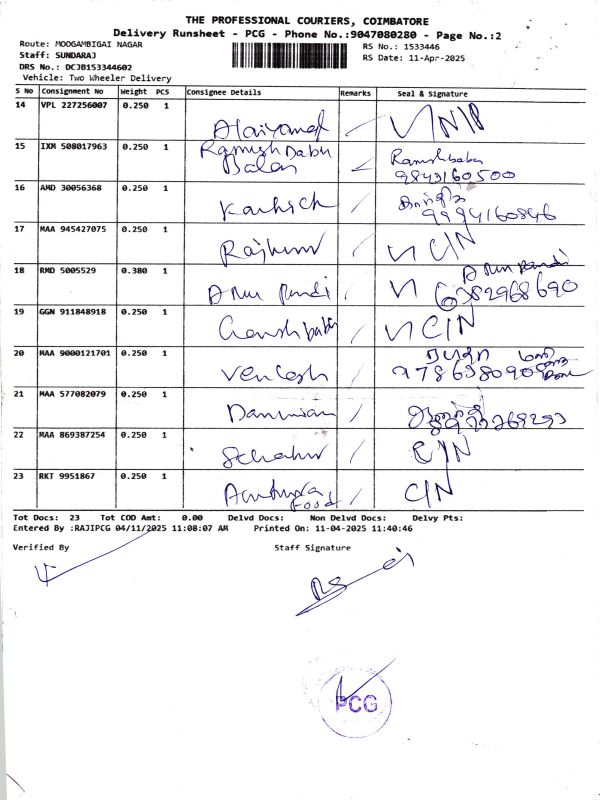 THE PROFESSIONAL COURIERS, COIMBATORE
Delivery Runsheet - PCG - Phone No.:9047080280 - Page No.:2
Route: MOOGAMBIGAI NAGAR RS No.: 1533446
Staff: SUNDARAJ RS Date: 11-Apr-2025
DRS No.: DCJB153344602
Vehicle: Two Wheeler Delivery
S No Consignment No Weight PCS Consignee Details Remarks Seal & Signature
14 VPL 227256007 0.250 1
15 IXM 508017963 0.250 1 Ramesh Babu Rameshbabu
Balan 9843160500
16 AMD 30056368 0.250 1 9994160846
17 MAA 945427075 0.250 1 Rajkumar CIN
18 RMD 5005529 0.380 1 Arun Pandi Arun Pandi
6382968690
19 GGN 911848918 0.250 1 CIN
20 MAA 9000121701 0.250 1 Venkesh
21 MAA 577082079 0.250 1
22 MAA 869387254 0.250 1 CIN
23 RKT 9951867 0.250 1 Food CIN
Tot Docs: 23 Tot COD Amt: 0.00 Delvd Docs: Non Delvd Docs: Delvy Pts:
Entered By :RAJIPCG 04/11/2025 11:08:07 AM Printed On: 11-04-2025 11:40:46
Verified By Staff Signature
PCG